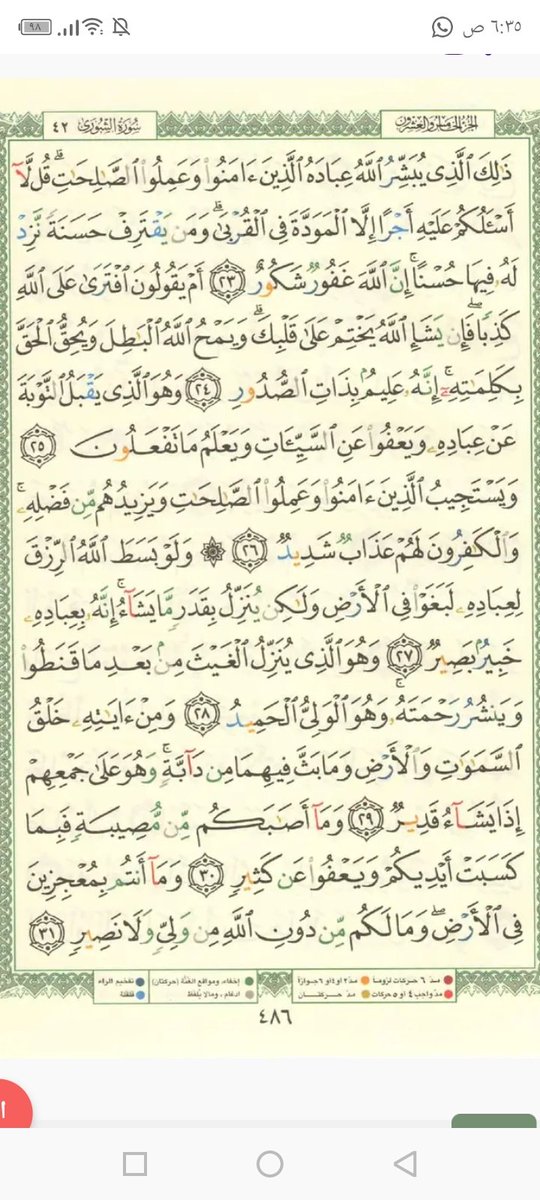 ٩٨
٦:٣٥ ص
سُورَةُ الشُّورَىٰ ٤٢
الجزء الخامس والعشرون
ذَٰلِكَ ٱلَّذِي يُبَشِّرُ ٱللَّهُ عِبَادَهُ ٱلَّذِينَ ءَامَنُوا۟ وَعَمِلُوا۟ ٱلصَّـٰلِحَـٰتِ ۗ قُل لَّآ
أَسْـَٔلُكُمْ عَلَيْهِ أَجْرًا إِلَّا ٱلْمَوَدَّةَ فِى ٱلْقُرْبَىٰ ۗ وَمَن يَقْتَرِفْ حَسَنَةً نَّزِدْ
لَهُۥ فِيهَا حُسْنًا ۚ إِنَّ ٱللَّهَ غَفُورٌ شَكُورٌ ٢٣ أَمْ يَقُولُونَ ٱفْتَرَىٰ عَلَى ٱللَّهِ
كَذِبًا ۖ فَإِن يَشَإِ ٱللَّهُ يَخْتِمْ عَلَىٰ قَلْبِكَ ۗ وَيَمْحُ ٱللَّهُ ٱلْبَـٰطِلَ وَيُحِقُّ ٱلْحَقَّ
بِكَلِمَـٰتِهِۦٓ ۚ إِنَّهُۥ عَلِيمٌۢ بِذَاتِ ٱلصُّدُورِ ٢٤ وَهُوَ ٱلَّذِى يَقْبَلُ ٱلتَّوْبَةَ
عَنْ عِبَادِهِۦ وَيَعْفُوا۟ عَنِ ٱلسَّيِّـَٔاتِ وَيَعْلَمُ مَا تَفْعَلُونَ ٢٥
وَيَسْتَجِيبُ ٱلَّذِينَ ءَامَنُوا۟ وَعَمِلُوا۟ ٱلصَّـٰلِحَـٰتِ وَيَزِيدُهُم مِّن فَضْلِهِۦ ۚ
وَٱلْكَـٰفِرُونَ لَهُمْ عَذَابٌ شَدِيدٌ ٢٦ ۞ وَلَوْ بَسَطَ ٱللَّهُ ٱلرِّزْقَ
لِعِبَادِهِۦ لَبَغَوْا۟ فِى ٱلْأَرْضِ وَلَـٰكِن يُنَزِّلُ بِقَدَرٍ مَّا يَشَآءُ ۚ إِنَّهُۥ بِعِبَادِهِۦ
خَبِيرٌۢ بَصِيرٌ ٢٧ وَهُوَ ٱلَّذِى يُنَزِّلُ ٱلْغَيْثَ مِنۢ بَعْدِ مَا قَنَطُوا۟
وَيَنشُرُ رَحْمَتَهُۥ ۚ وَهُوَ ٱلْوَلِىُّ ٱلْحَمِيدُ ٢٨ وَمِنْ ءَايَـٰتِهِۦ خَلْقُ
ٱلسَّمَـٰوَٰتِ وَٱلْأَرْضِ وَمَا بَثَّ فِيهِمَا مِن دَآبَّةٍ ۚ وَهُوَ عَلَىٰ جَمْعِهِمْ
إِذَا يَشَآءُ قَدِيرٌ ٢٩ وَمَآ أَصَـٰبَكُم مِّن مُّصِيبَةٍ فَبِمَا
كَسَبَتْ أَيْدِيكُمْ وَيَعْفُوا۟ عَن كَثِيرٍ ٣٠ وَمَآ أَنتُم بِمُعْجِزِينَ
فِى ٱلْأَرْضِ ۖ وَمَا لَكُم مِّن دُونِ ٱللَّهِ مِن وَلِىٍّ وَلَا نَصِيرٍ ٣١
مد ٦ حركات لزوما مد ٢ أو ٤ أو ٦ جوازا إخفاء، ومواقع الغنة (حركتان) تفخيم الراء
مد واجب ٤ أو ٥ حركات مد حركتان ادغام، وما لا يلفظ قلقلة
٤٨٦